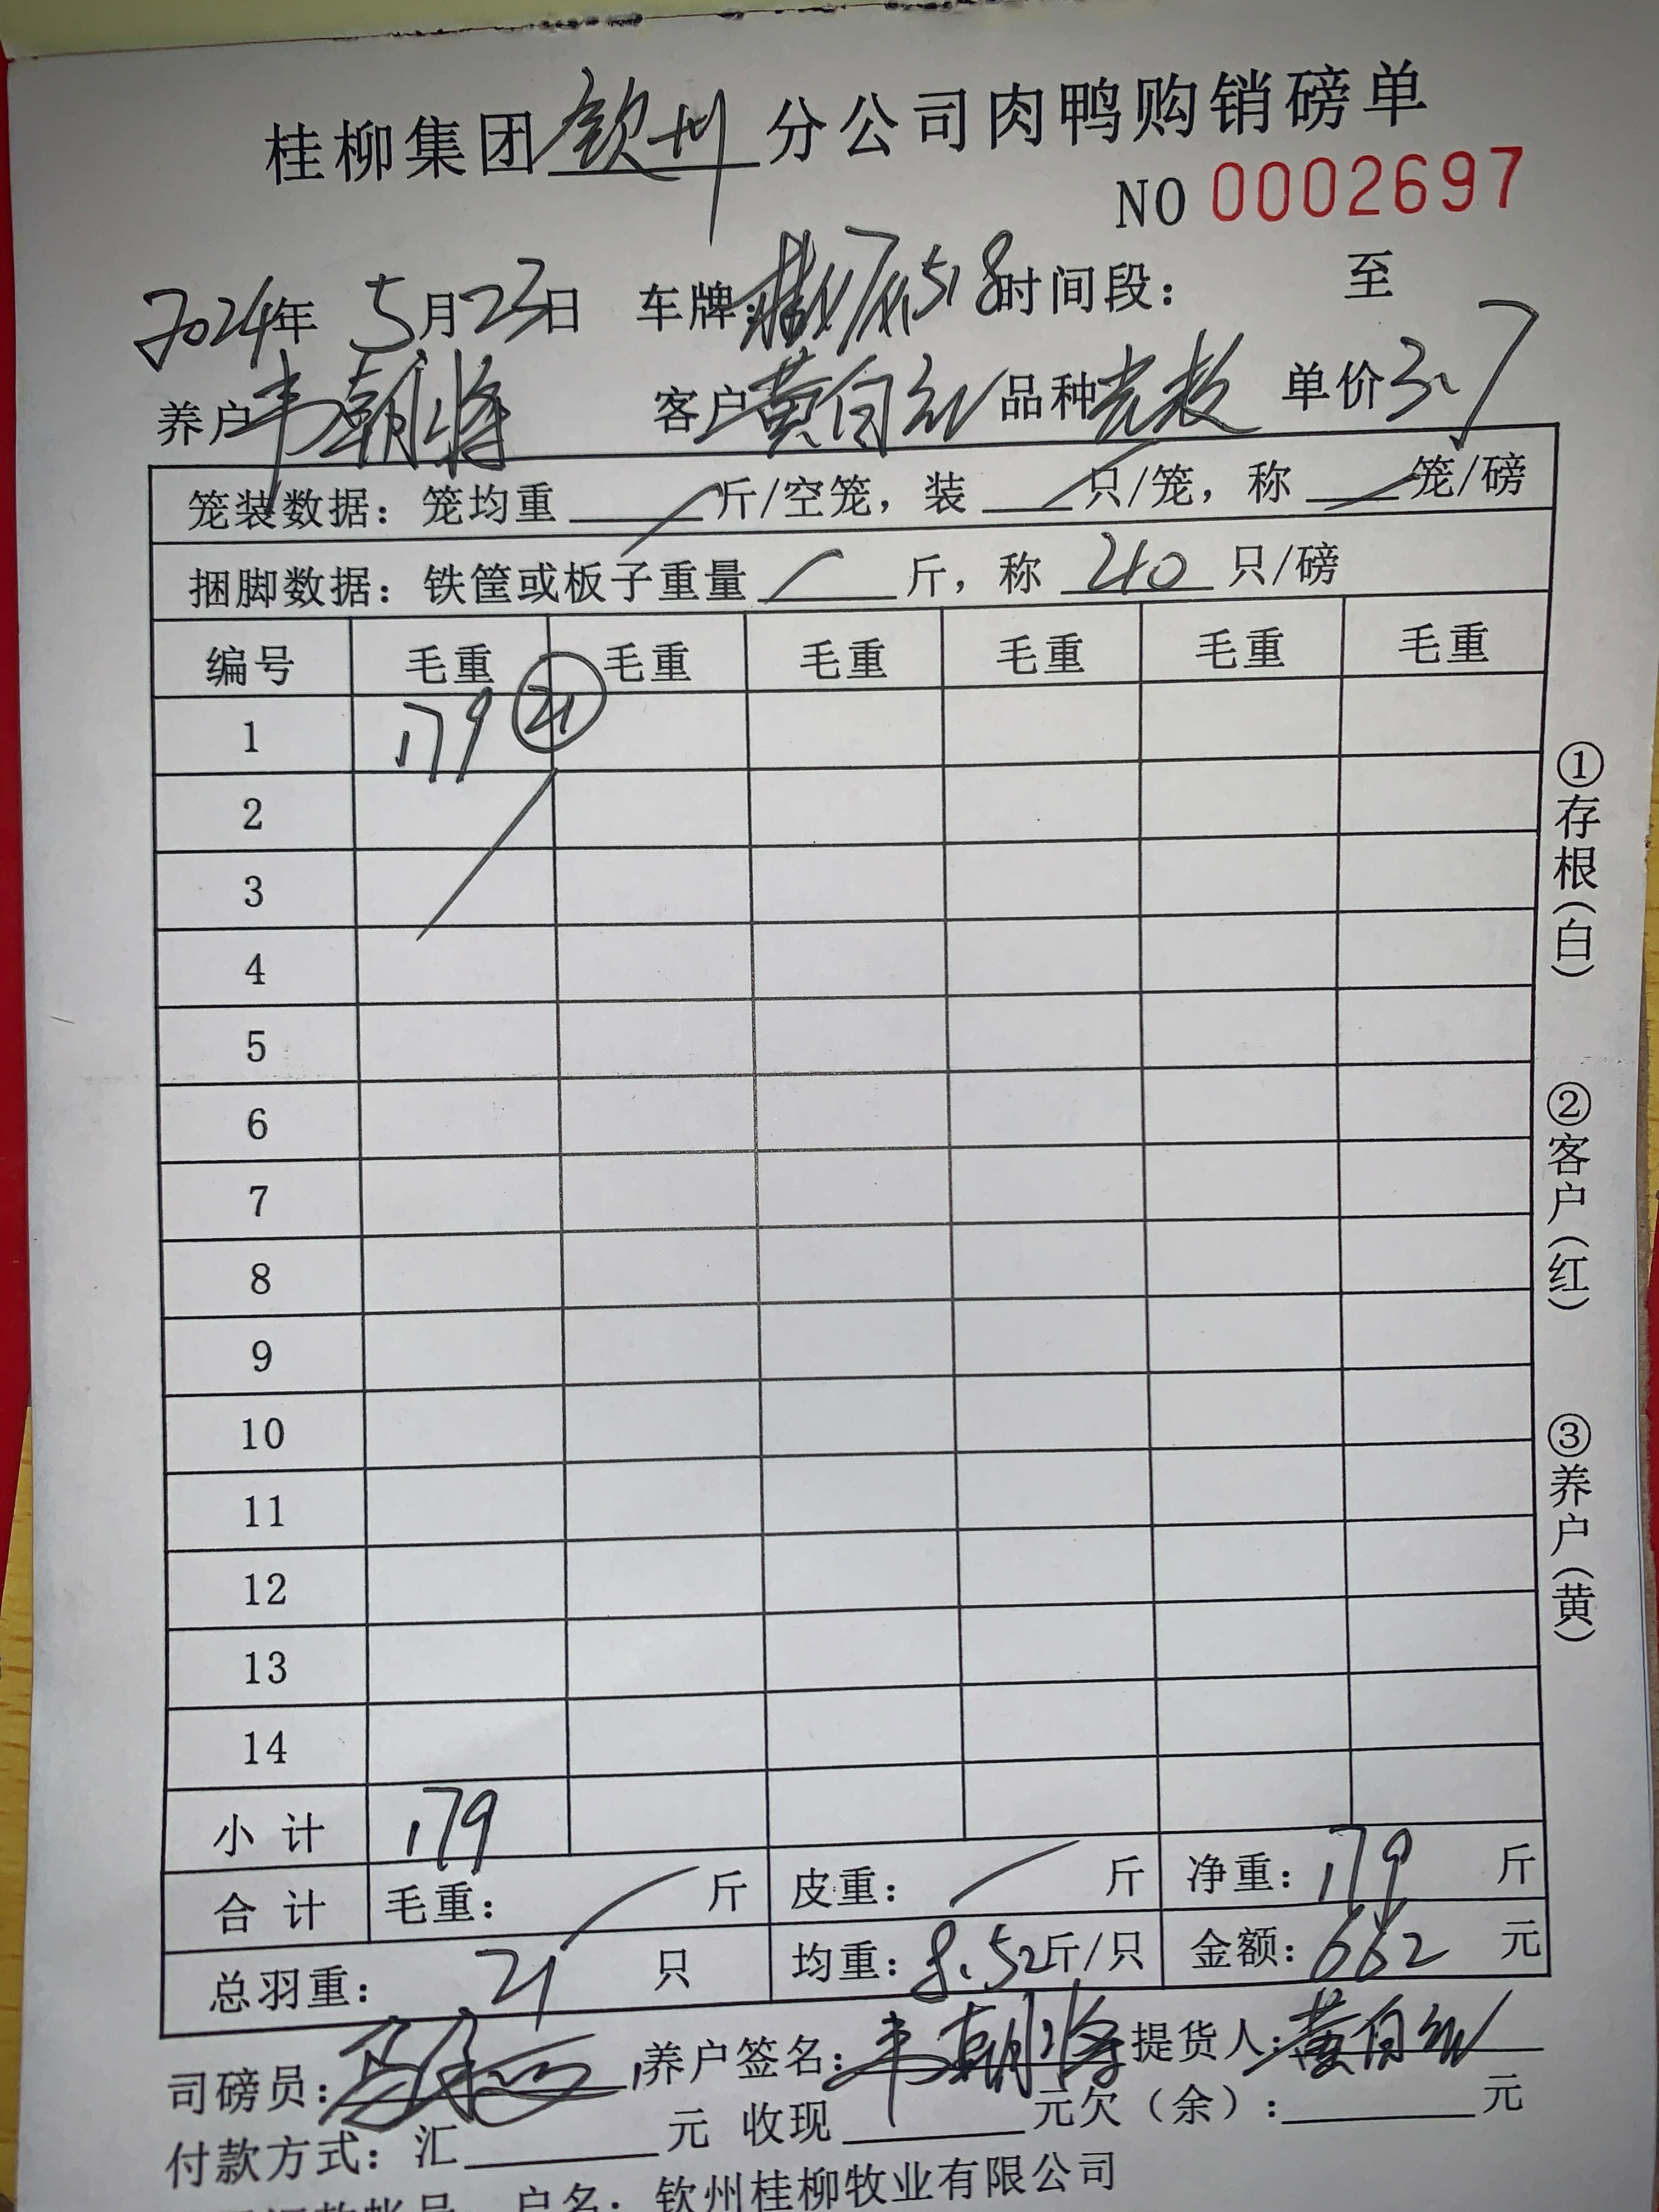 桂柳集团钦州分公司肉鸭购销磅单
NO 0002697
2024年 5月23日 车牌: 518 时间段: 至
养户韦朝将 客户黄自红 品种 单价3.7
笼装数据: 笼均重 斤/空笼, 装 只/笼, 称 笼/磅
捆脚数据: 铁筐或板子重量 斤, 称 40 只/磅
编号 毛重 毛重 毛重 毛重 毛重 毛重
1 179 21
2
3
4
5
6
7
8
9
10
11
12
13
14
小 计 179
合 计 毛重: 斤 皮重: 斤 净重: 179 斤
总羽重: 21 只 均重: 8.52斤/只 金额: 662 元
司磅员: 养户签名: 韦朝将 提货人: 黄自红
付款方式: 汇 元 收现 元欠(余): 元
户名: 钦州桂柳牧业有限公司
①存根(白)
②客户(红)
③养户(黄)